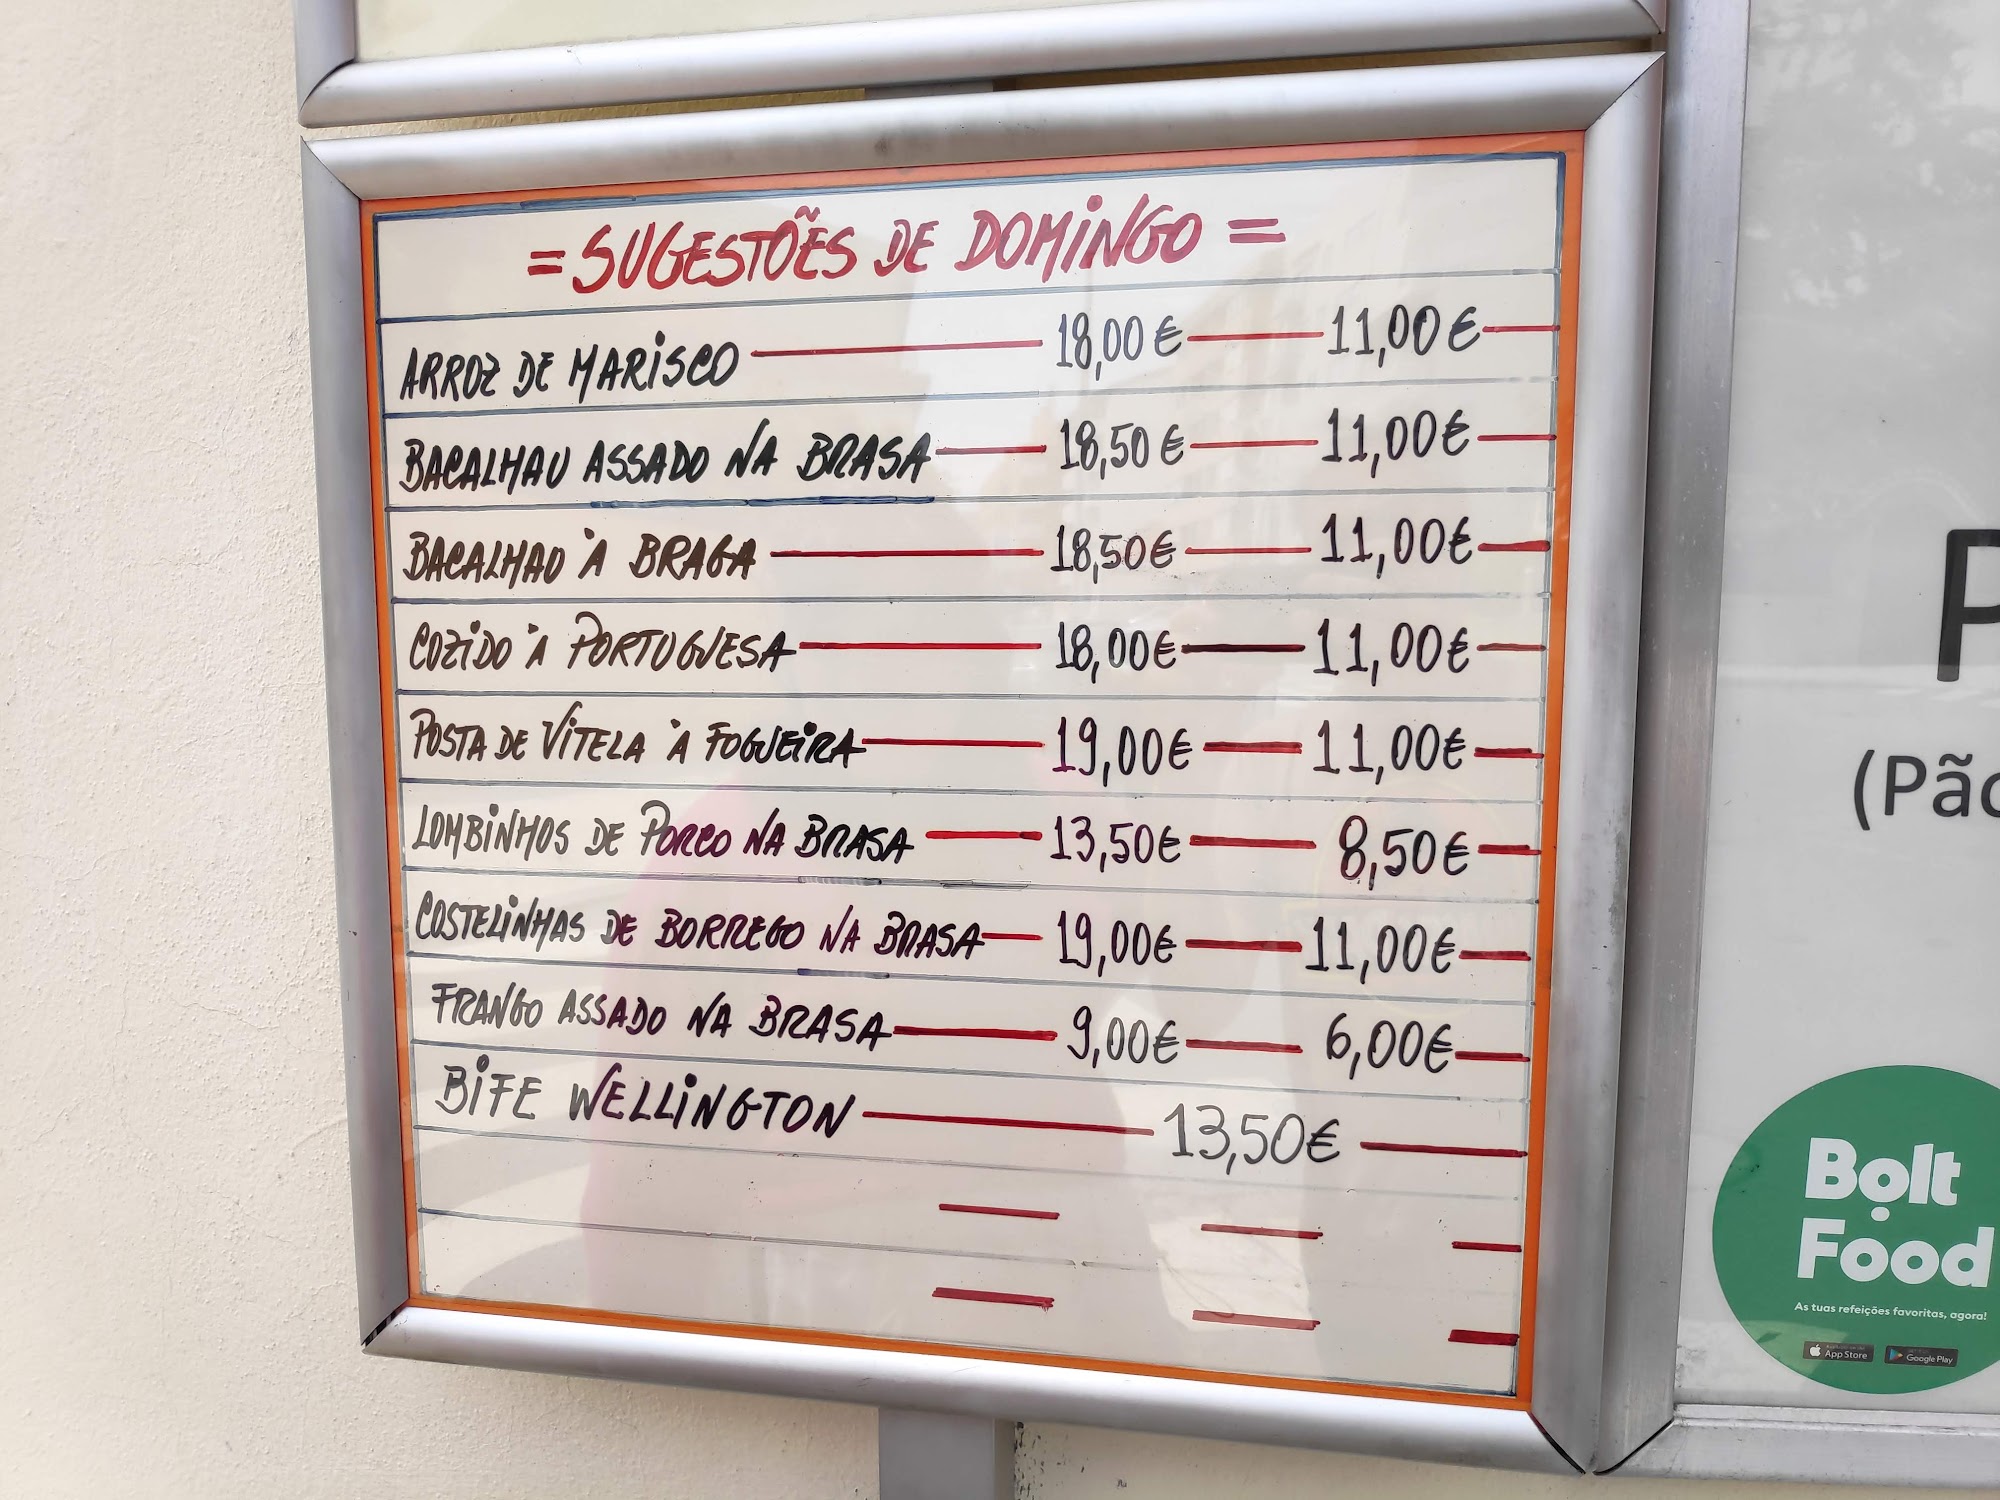 = SUGESTÕES DE DOMINGO =
ARROZ DE MARISCO 18,00€ 11,00€
BACALHAU ASSADO NA BRASA 18,50€ 11,00€
BACALHAU À BRAGA 18,50€ 11,00€
COZIDO À PORTUGUESA 18,00€ 11,00€
POSTA DE VITELA À FOGUEIRA 19,00€ 11,00€
LOMBINHOS DE PORCO NA BRASA 13,50€ 8,50€
COSTELINHAS DE BORREGO NA BRASA 19,00€ 11,00€
FRANGO ASSADO NA BRASA 9,00€ 6,00€
BIFE WELLINGTON 13,50€
P
(Pão
Bolt
Food
As tuas refeições favoritas, agora!
App Store
Google Play